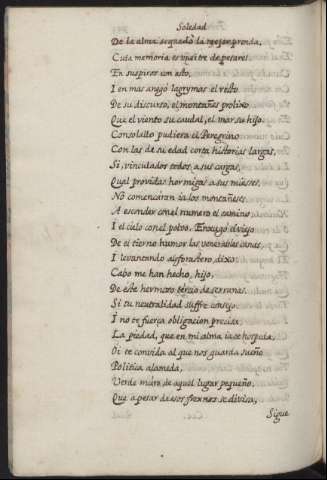 Soledad
De la alma se quedò la mejor prenda,
Cuia memoria es buitre de pesares.
En suspiros con esto,
I en mas anegò lagrymas el resto
De su discurso, el montañes prolixo,
Que el viento su caudal, el mar su hijo.
Consolallo pudiera el Peregrino
Con las de su edad corta historias largas,
Si, vinculados todos a sus cargas,
Qual providas hormigas a sus miesses,
No comenzaran ia los montañeses
A esconder con el numero el camino,
I el cielo con el polvo. Enxugò el viejo
De el tierno humor las venerables canas,
I levantando al forastero, dixo.
Cabo me han hecho, hijo,
De este hermoso tercio de serranas.
Si tu neutralidad suffre consejo,
I no te fuerça obligacion precisa,
La piedad, que en mi alma ia te hospeda,
Oi te convida al que nos guarda sueño
Politica alameda,
Verde muro de aquel lugar pequeño,
Que a pesar de esos fresnos se divisa,
Sigue